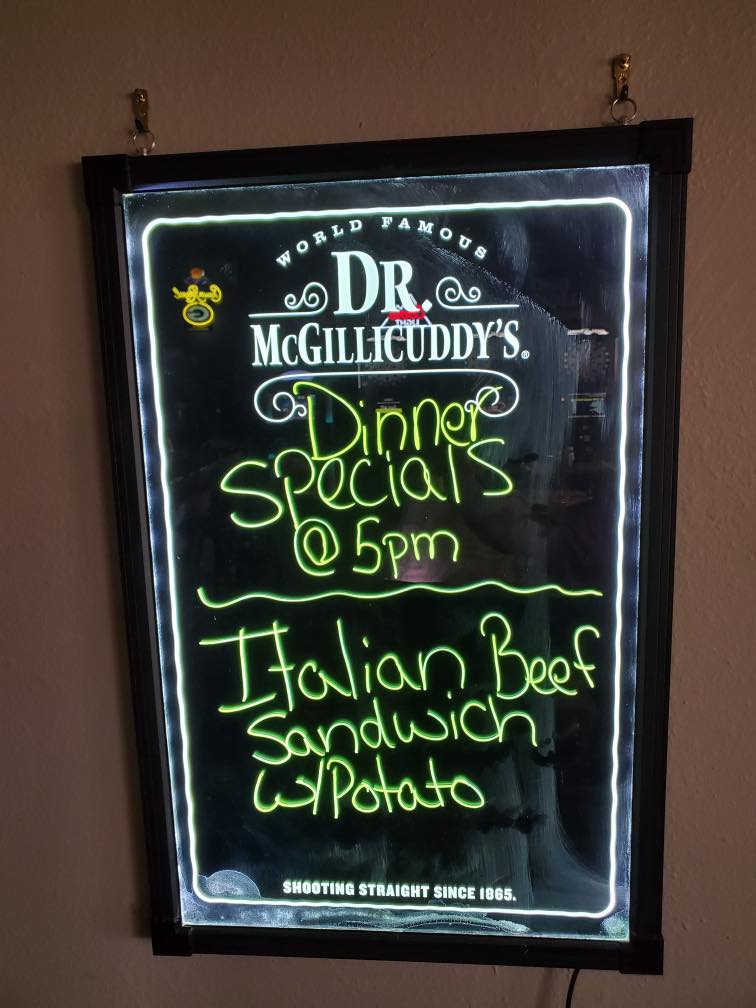 WORLD FAMOUS
DR.
McGILLICUDDY'S®
Dinner
Specials
@ 5pm
Italian Beef
Sandwich
w/Potato
SHOOTING STRAIGHT SINCE 1865.